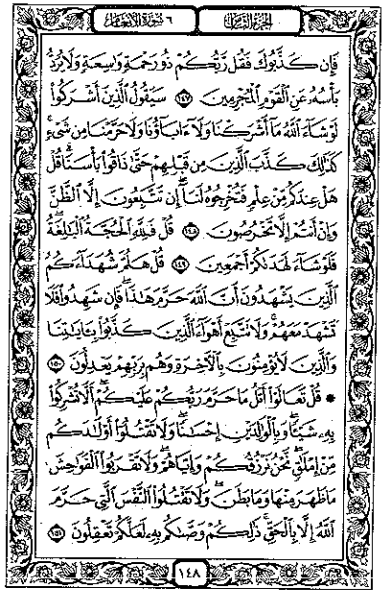 الجزء الثامن
٦ سورة الأنعام
فَإِن كَذَّبُوكَ فَقُل رَّبُّكُمْ ذُو رَحْمَةٍ وَٰسِعَةٍ وَلَا يُرَدُّ
بَأْسُهُۥ عَنِ ٱلْقَوْمِ ٱلْمُجْرِمِينَ ١٤٧ سَيَقُولُ ٱلَّذِينَ أَشْرَكُوا۟
لَوْ شَآءَ ٱللَّهُ مَآ أَشْرَكْنَا وَلَآ ءَابَآؤُنَا وَلَا حَرَّمْنَا مِن شَىْءٍ ۚ
كَذَٰلِكَ كَذَّبَ ٱلَّذِينَ مِن قَبْلِهِمْ حَتَّىٰ ذَاقُوا۟ بَأْسَنَا ۗ قُلْ
هَلْ عِندَكُم مِّنْ عِلْمٍ فَتُخْرِجُوهُ لَنَآ ۖ إِن تَتَّبِعُونَ إِلَّا ٱلظَّنَّ
وَإِنْ أَنتُمْ إِلَّا تَخْرُصُونَ ١٤٨ قُلْ فَلِلَّهِ ٱلْحُجَّةُ ٱلْبَٰلِغَةُ ۖ
فَلَوْ شَآءَ لَهَدَىٰكُمْ أَجْمَعِينَ ١٤٩ قُلْ هَلُمَّ شُهَدَآءَكُمُ
ٱلَّذِينَ يَشْهَدُونَ أَنَّ ٱللَّهَ حَرَّمَ هَٰذَا ۖ فَإِن شَهِدُوا۟ فَلَا
تَشْهَدْ مَعَهُمْ ۚ وَلَا تَتَّبِعْ أَهْوَآءَ ٱلَّذِينَ كَذَّبُوا۟ بِـَٔايَٰتِنَا
وَٱلَّذِينَ لَا يُؤْمِنُونَ بِٱلْءَاخِرَةِ وَهُم بِرَبِّهِمْ يَعْدِلُونَ ١٥٠
۞ قُلْ تَعَالَوْا۟ أَتْلُ مَا حَرَّمَ رَبُّكُمْ عَلَيْكُمْ ۖ أَلَّا تُشْرِكُوا۟
بِهِۦ شَيْـًٔا ۖ وَبِٱلْوَٰلِدَيْنِ إِحْسَٰنًا ۖ وَلَا تَقْتُلُوٓا۟ أَوْلَٰدَكُم
مِّنْ إِمْلَٰقٍ ۖ نَّحْنُ نَرْزُقُكُمْ وَإِيَّاهُمْ ۖ وَلَا تَقْرَبُوا۟ ٱلْفَوَٰحِشَ
مَا ظَهَرَ مِنْهَا وَمَا بَطَنَ ۖ وَلَا تَقْتُلُوا۟ ٱلنَّفْسَ ٱلَّتِى حَرَّمَ
ٱللَّهُ إِلَّا بِٱلْحَقِّ ۚ ذَٰلِكُمْ وَصَّىٰكُم بِهِۦ لَعَلَّكُمْ تَعْقِلُونَ ١٥١
١٤٨